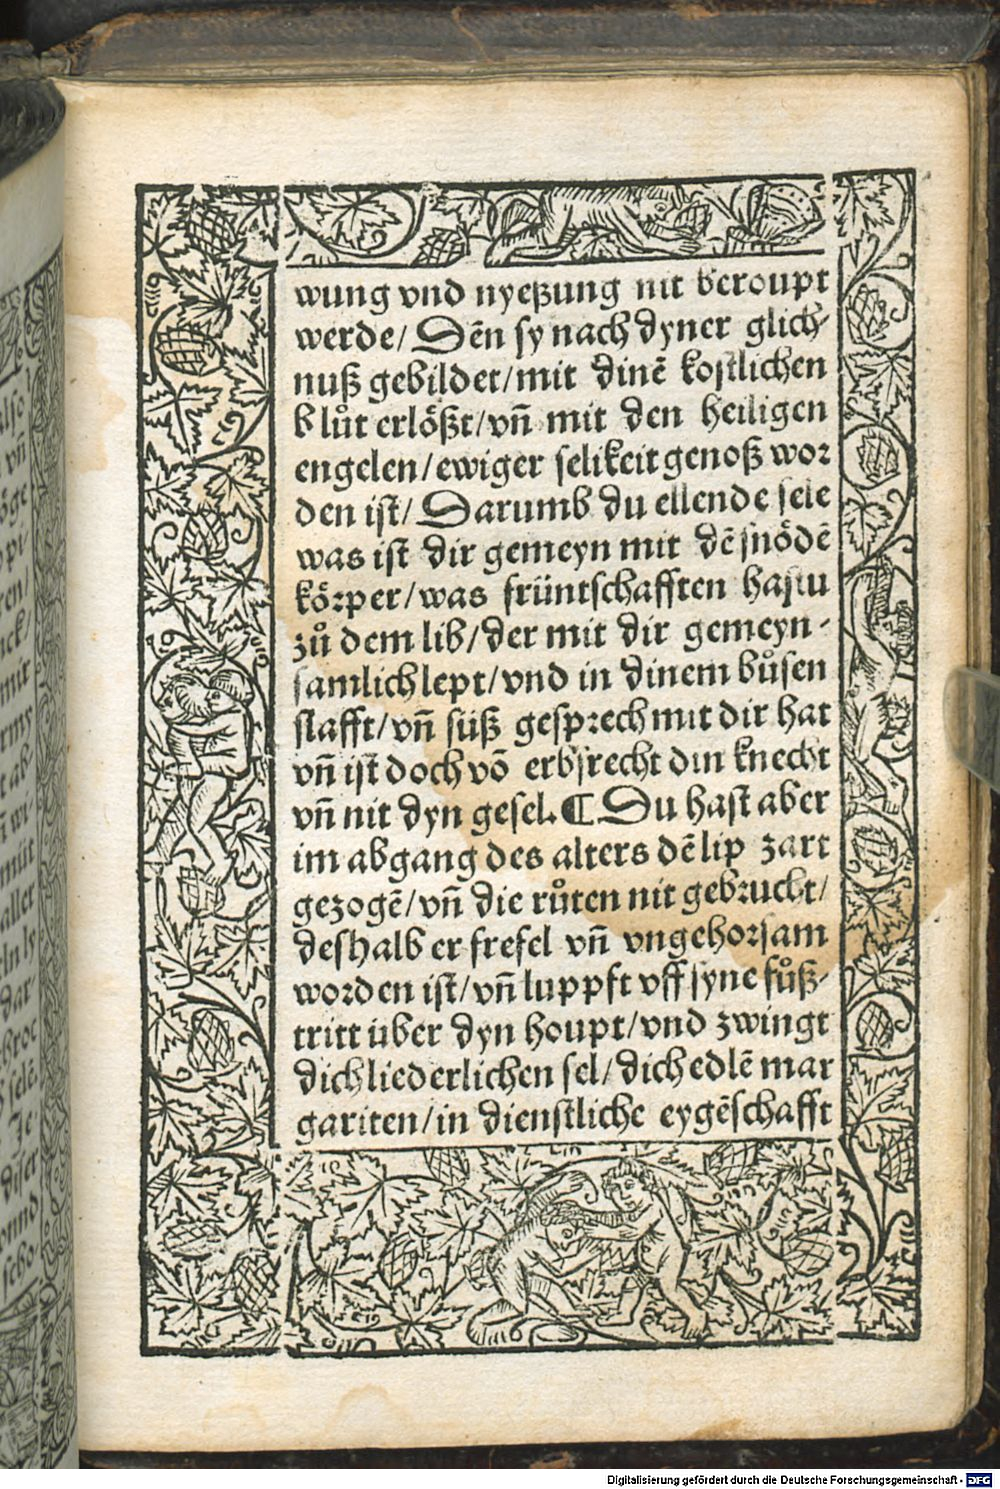 wung vnd nyeßung nit beroupt
werde/ Dēn sy nach dyner glich-
nuß gebildet/mit dinē kostlichen
blůt erlößt/vn̄ mit den heiligen
engelen/ewiger selikeit genoß wor
den ist/ Darumb du ellende sele
was ist dir gemeyn mit dē snödē
körper/was früntschafften hastu
zů dem lib/der mit dir gemeyn-
samlich lept/vnd in dinem bůsen
slafft/vn̄ süß gesprech mit dir hat
vn̄ ist doch vō erbsrecht din knecht
vn̄ nit dyn gesel. ¶ Du hast aber
im abgang des alters dē lip zart
gezogē/vn̄ die růten nit gebrucht/
deshalb er frefel vn̄ vngehorsam
worden ist/vn̄ luppft vff syne fůß-
tritt über dyn houpt/vnd zwingt
dich liederlichen sel/dich edlē mar
gariten/in dienstliche eygēschafft
Digitalisierung gefördert durch die Deutsche Forschungsgemeinschaft - DFG